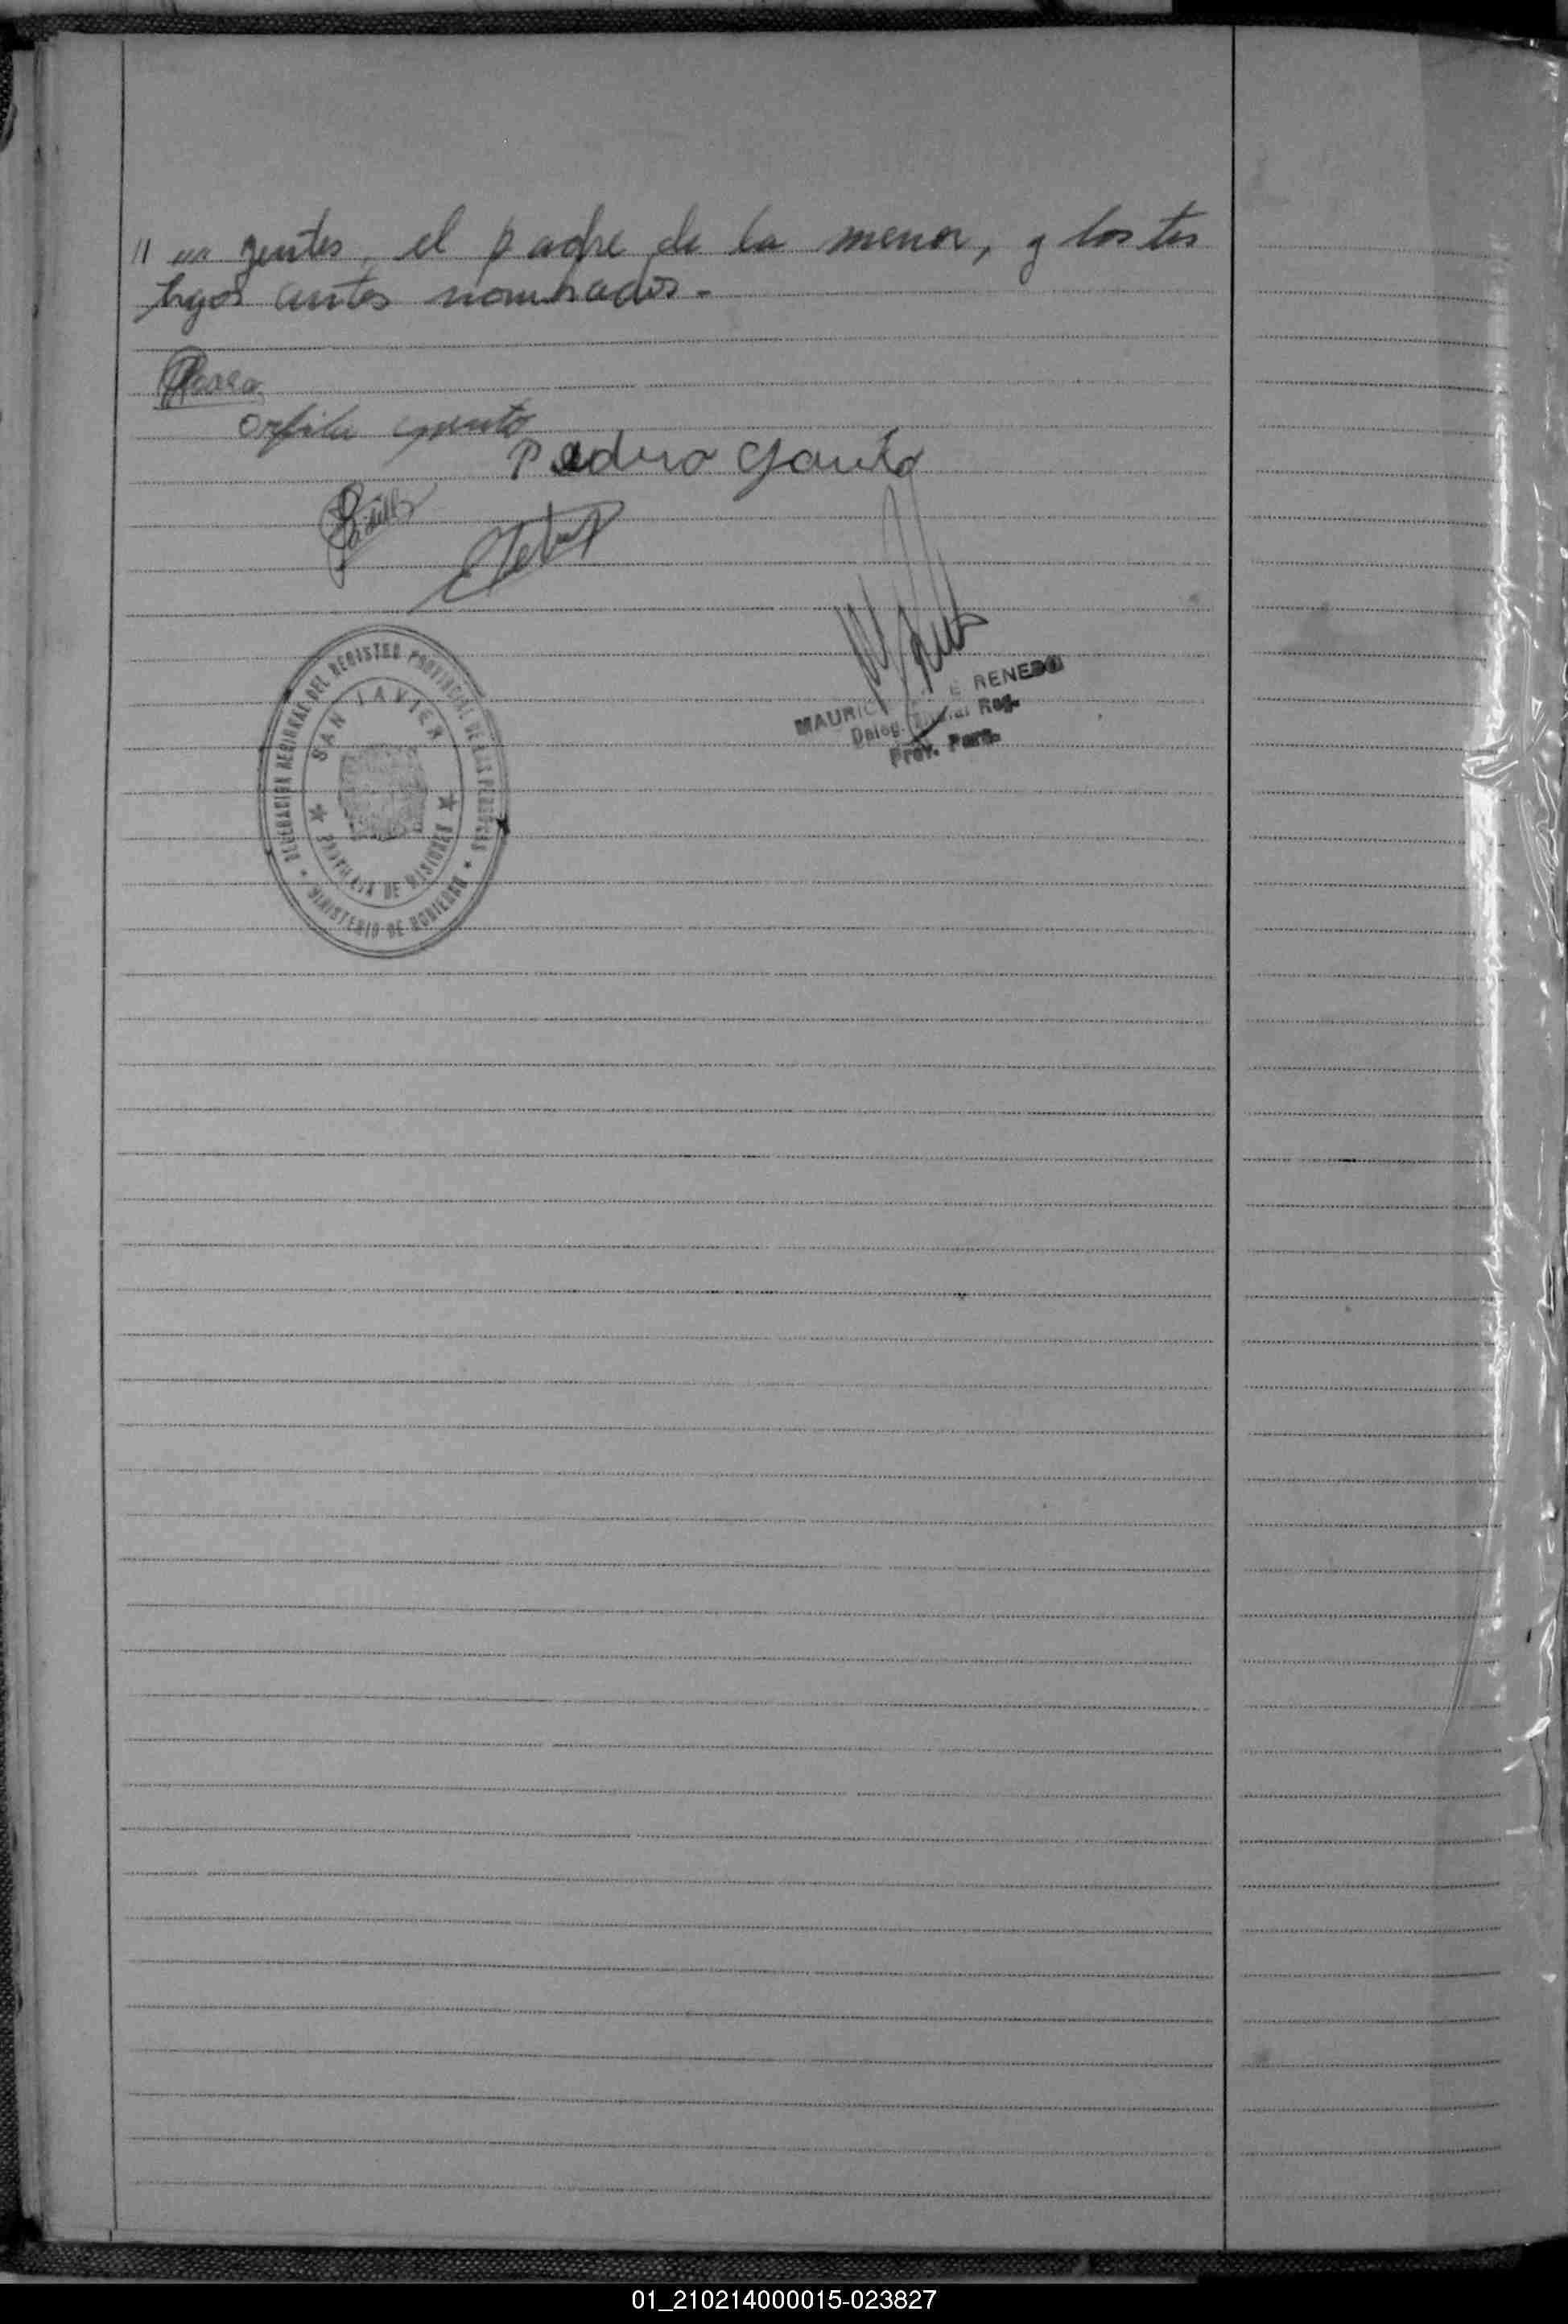 " " gentes, el padre de la menor, y los tes
tigos antes nombrados.-
Orfila
Pedro Gauto
MAURIC E RENEDO
Deleg. Reg.
Prov. Pers.
DELEGACION REGIONAL DEL REGISTRO PROVINCIAL DE LAS PERSONAS
SAN JAVIER
PROVINCIA DE MISIONES
MINISTERIO DE GOBIERNO
01_210214000015-023827